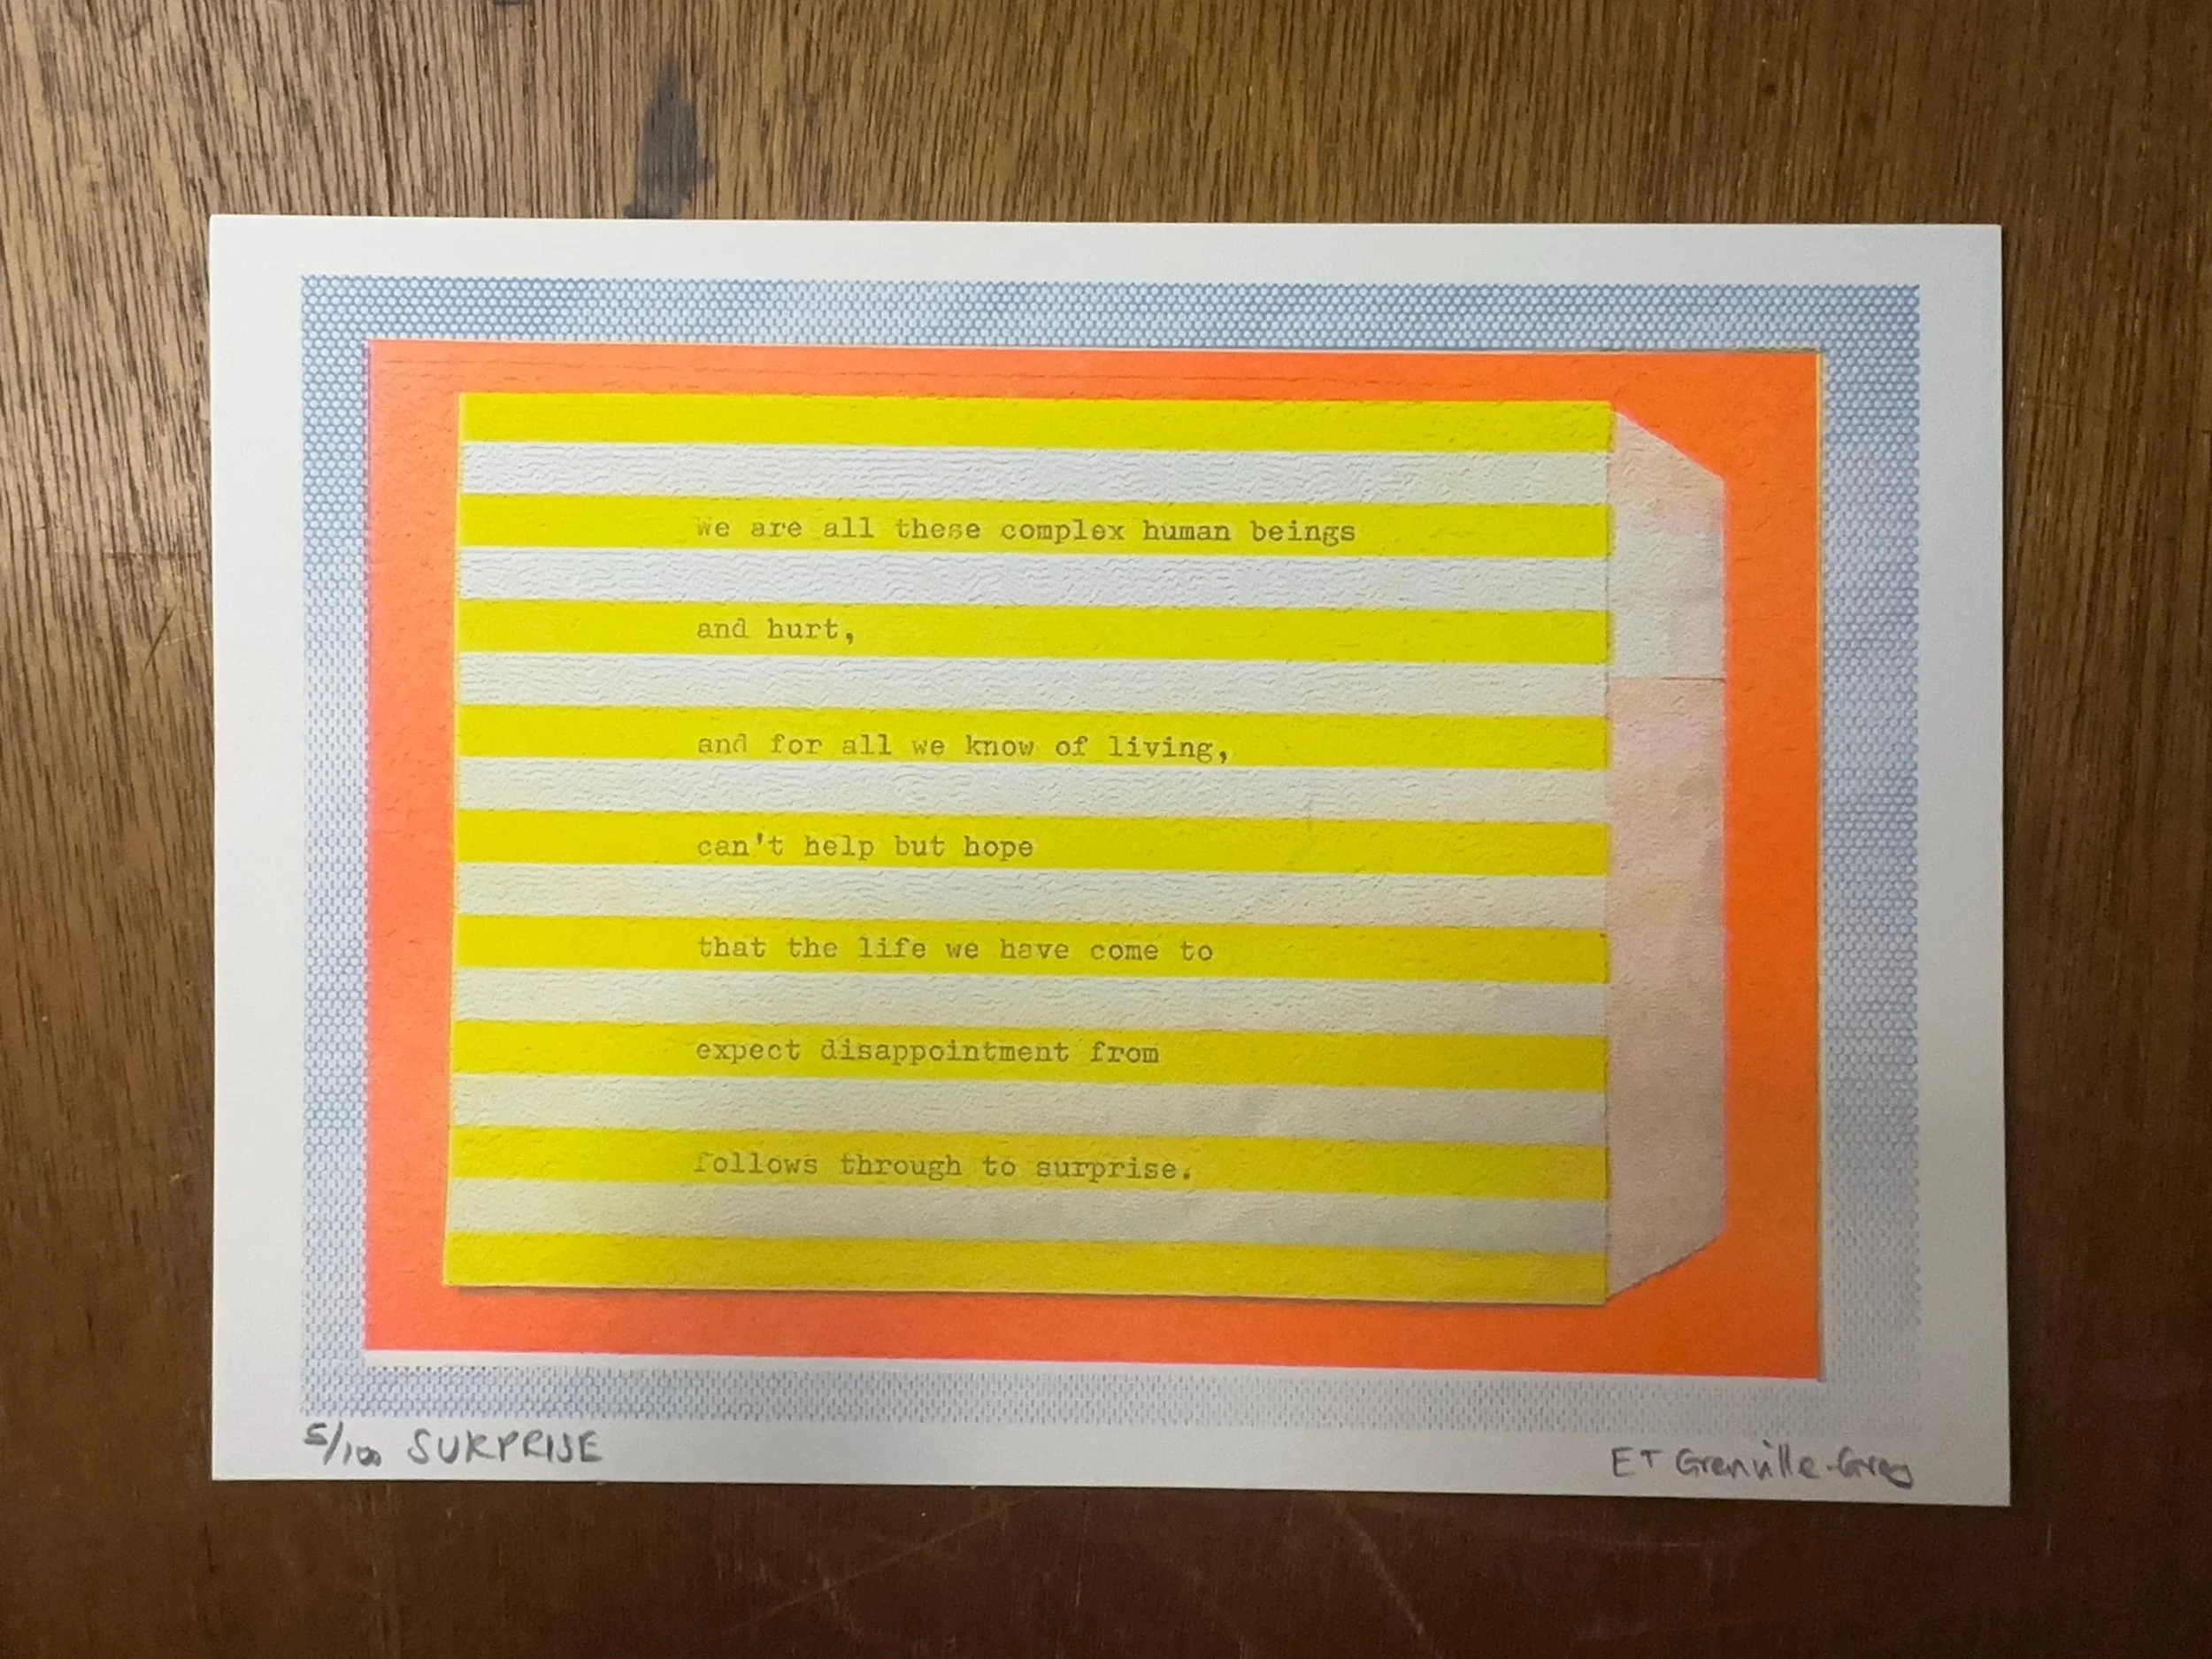 we are all these complex human beings
and hurt,
and for all we know of living,
can't help but hope
that the life we have come to
expect disappointment from
follows through to surprise.
5/100 SURPRISE
ET Grenville-Grey